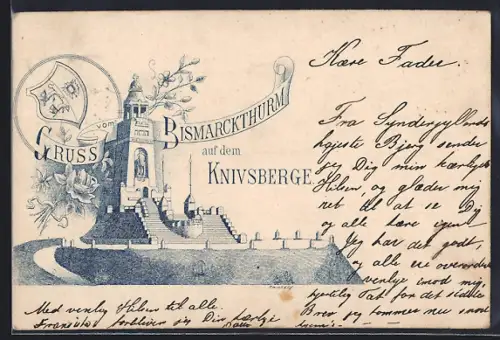 GRUSS vom BISMARCKTHURM
auf dem
KNIVSBERGE
Kære Fader.
Fra Sønderjyllands
højeste Bjerg sender
jeg Dig min kærligste
Hilsen, og glæder mig
ret til at se Dig
og alle kære igen
Jeg har det godt,
og alle ere overordentlig
venlige imod mig.
hjertelig Tak for det sidste
Brev jeg kommer nu snart
Med venlig Hilsen til alle.
forbliver jeg Din kærlige